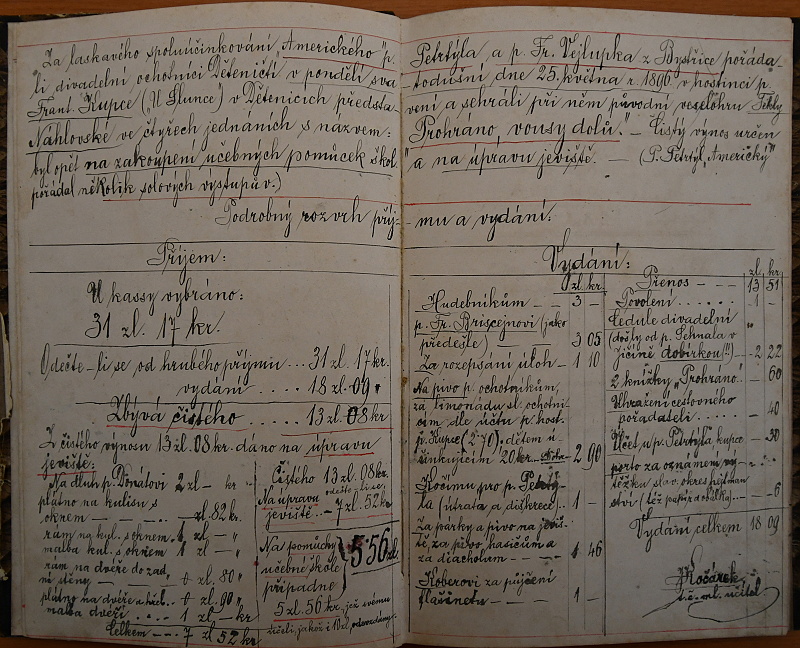 "Za laskavého spoluúčinkování „Amerického" p. Petrtýla a p. Fr. Vejlupka z Bystřice pořáda-
li divadelní ochotníci Děteničtí v pondělí sva- todušní dne 25. května r. 1896 v hostinci p.
Frant. Kupce („U Slunce") v Dětenicích předsta- vení a sehráli při něm původní veselohru Tekly
Náhlovské ve čtyřech jednáních s názvem: „Prohráno, vousy dolů." – Čistý výnos určen
byl opět na zakoupení učebných pomůcek škol. a na úpravu jeviště. – (P. Petrtýl, „Americký"
pořádal několik solových výstupů v.)
Podrobný rozvrh příj- mu a vydání:
Příjem:
U kassy vybráno:
31 zl. 17 kr.
Odečte-li se od hrubého příjmu ... 31 zl. 17 kr.
vydání ... 18 zl. 09 "
Zbývá čistého ... 13 zl. 08 kr
Z čistého výnosu 13 zl. 08 kr. dáno na úpravu
jeviště:
Na dluh p. Donátovi 2 zl – kr
plátno na kulisu s
oknem – – – zl. 82 kr.
rám na kul. s oknem 1 zl. – "
malba kul. s oknem 1 zl – "
rám na dveře do zad,
ní stěny – – 0 zl. 80 "
plátno na dveře 0 zl. 90 "
malba dveří . . . 1 zl – kr
Celkem – – 7 zl 52 kr
Čistého 13 zl. 08 kr.
odečte-li se
Na úpravu
jeviště... – 7 zl. 52 kr
Na pomůcky
učebné škole
případne
5 56
5 zl. 56 kr., jež svému
účeli, jakož i 10 zl. odevzdány.
Vydání:
zl. kr.
Hudebníkům – – – 3 –
p. Fr. Briscejnovi (jako
předešle) 3 05
Za rozepsání úloh – 1 10
Na pivo p. ochotníkům,
za limonádu sl. ochotni-
cím dle účtu p. host.
p. Kupce (2·70), dětem ú-
činkujícím 20 kr. 2 90
Kočímu pro p. Petrtý-
la (útrata a diškrece) 1 –
Za párky a pivo na jeviš-
tě, za pivo hasičům a
za diacholam – – 1 46
Koberovi za půjčení
flašinetu – – – 1 –
zl. kr.
Přenos – – – 13 51
Povolení . . . . . 1 –
Cedule divadelní
(došly od p. Sehnala v
Jičíně dobírkou!!) – 2 22
2 knížky „Prohráno" – 60
Uhražení cestovného
pořadateli . . . . . – 40
Účet u p. Petrtýla kupce – 30
porto za oznámení vý-
těžku slav. okres. hejtman
ství (též papír dobílky) . . . – 6
Vydání celkem 18 09
JKočárek,
t. č. ml. učitel.